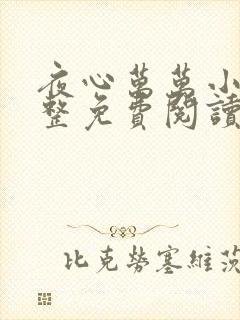 夜心萬萬小
整免費閱讀
比克勞塞維茨